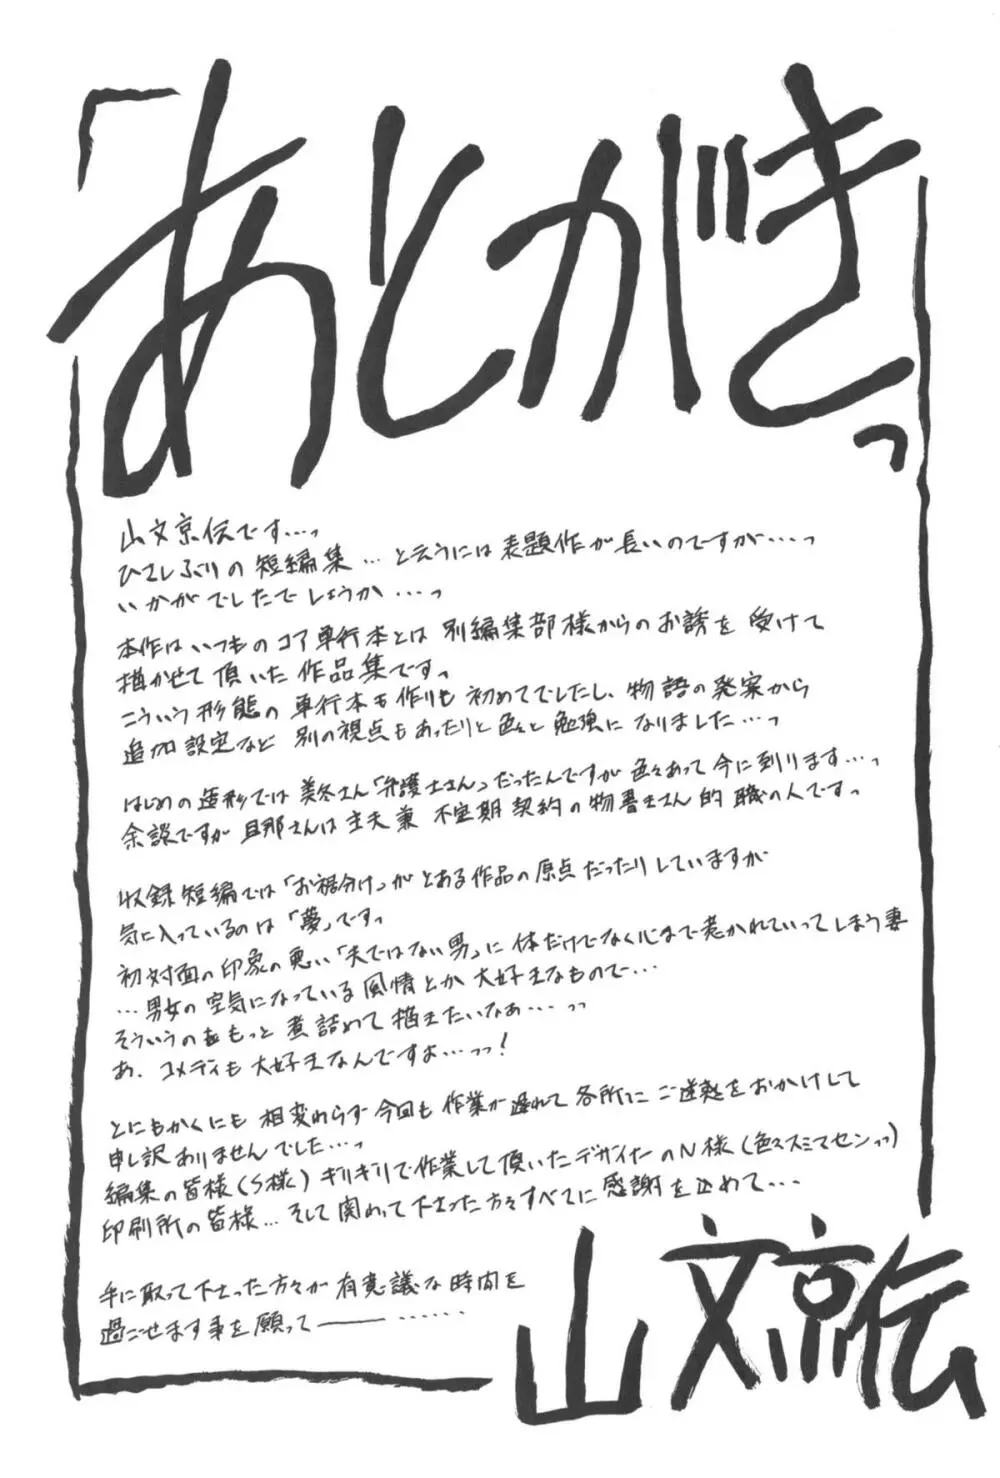 「あとがきっ
山文京伝です…っ
ひさしぶりの短編集…と云うには表題作が長いのですが…っ
いかがでしたでしょうか…っ
本作はいつものコアマ単行本とは別編集部様からのお誘を受けて
描かせて頂いた作品集ですっ
こういう形態の単行本も作りも初めてでしたし、物語の発案から
追加設定など別の視点もあったりと色々と勉強になりました…っ
はじめの造形では美冬さん「弁護士さん」だったんですが色々あって今に到ります…っ
余談ですが旦那さんは主夫兼不定期契約の物書きさん的職の人ですっ
収録短編では「お裾分け」がとある作品の原点だったりしていますが
気に入っているのは「夢」ですっ
初対面の印象の悪い「夫ではない男」に体だけでなく心まで惹かれていってしまう妻
…男女の空気になっている風情とか大好きなもので…
そういうのをもっと煮詰めて描きたいなぁ…っっ
あ、コメディも大好きなんですよ…っっ!
とにもかくにも相変わらず今回も作業が遅れて各所にご迷惑をおかけして
申し訳ありませんでした…っ
編集の皆様(S様)ギリギリで作業して頂いたデザイナーのN様(色々スミマセンっっ)
印刷所の皆様…そして関わって下さった方々すべてに感謝を込めて…
手に取って下さった方々が有意議な時間を
過ごせます事を願って――……
山文京伝